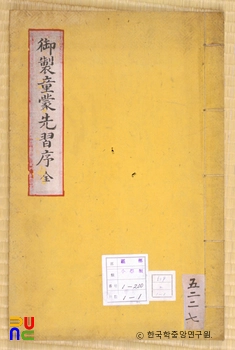 御製童蒙先習序 全
1-210
1-1
五二二七
© 한국학중앙연구원